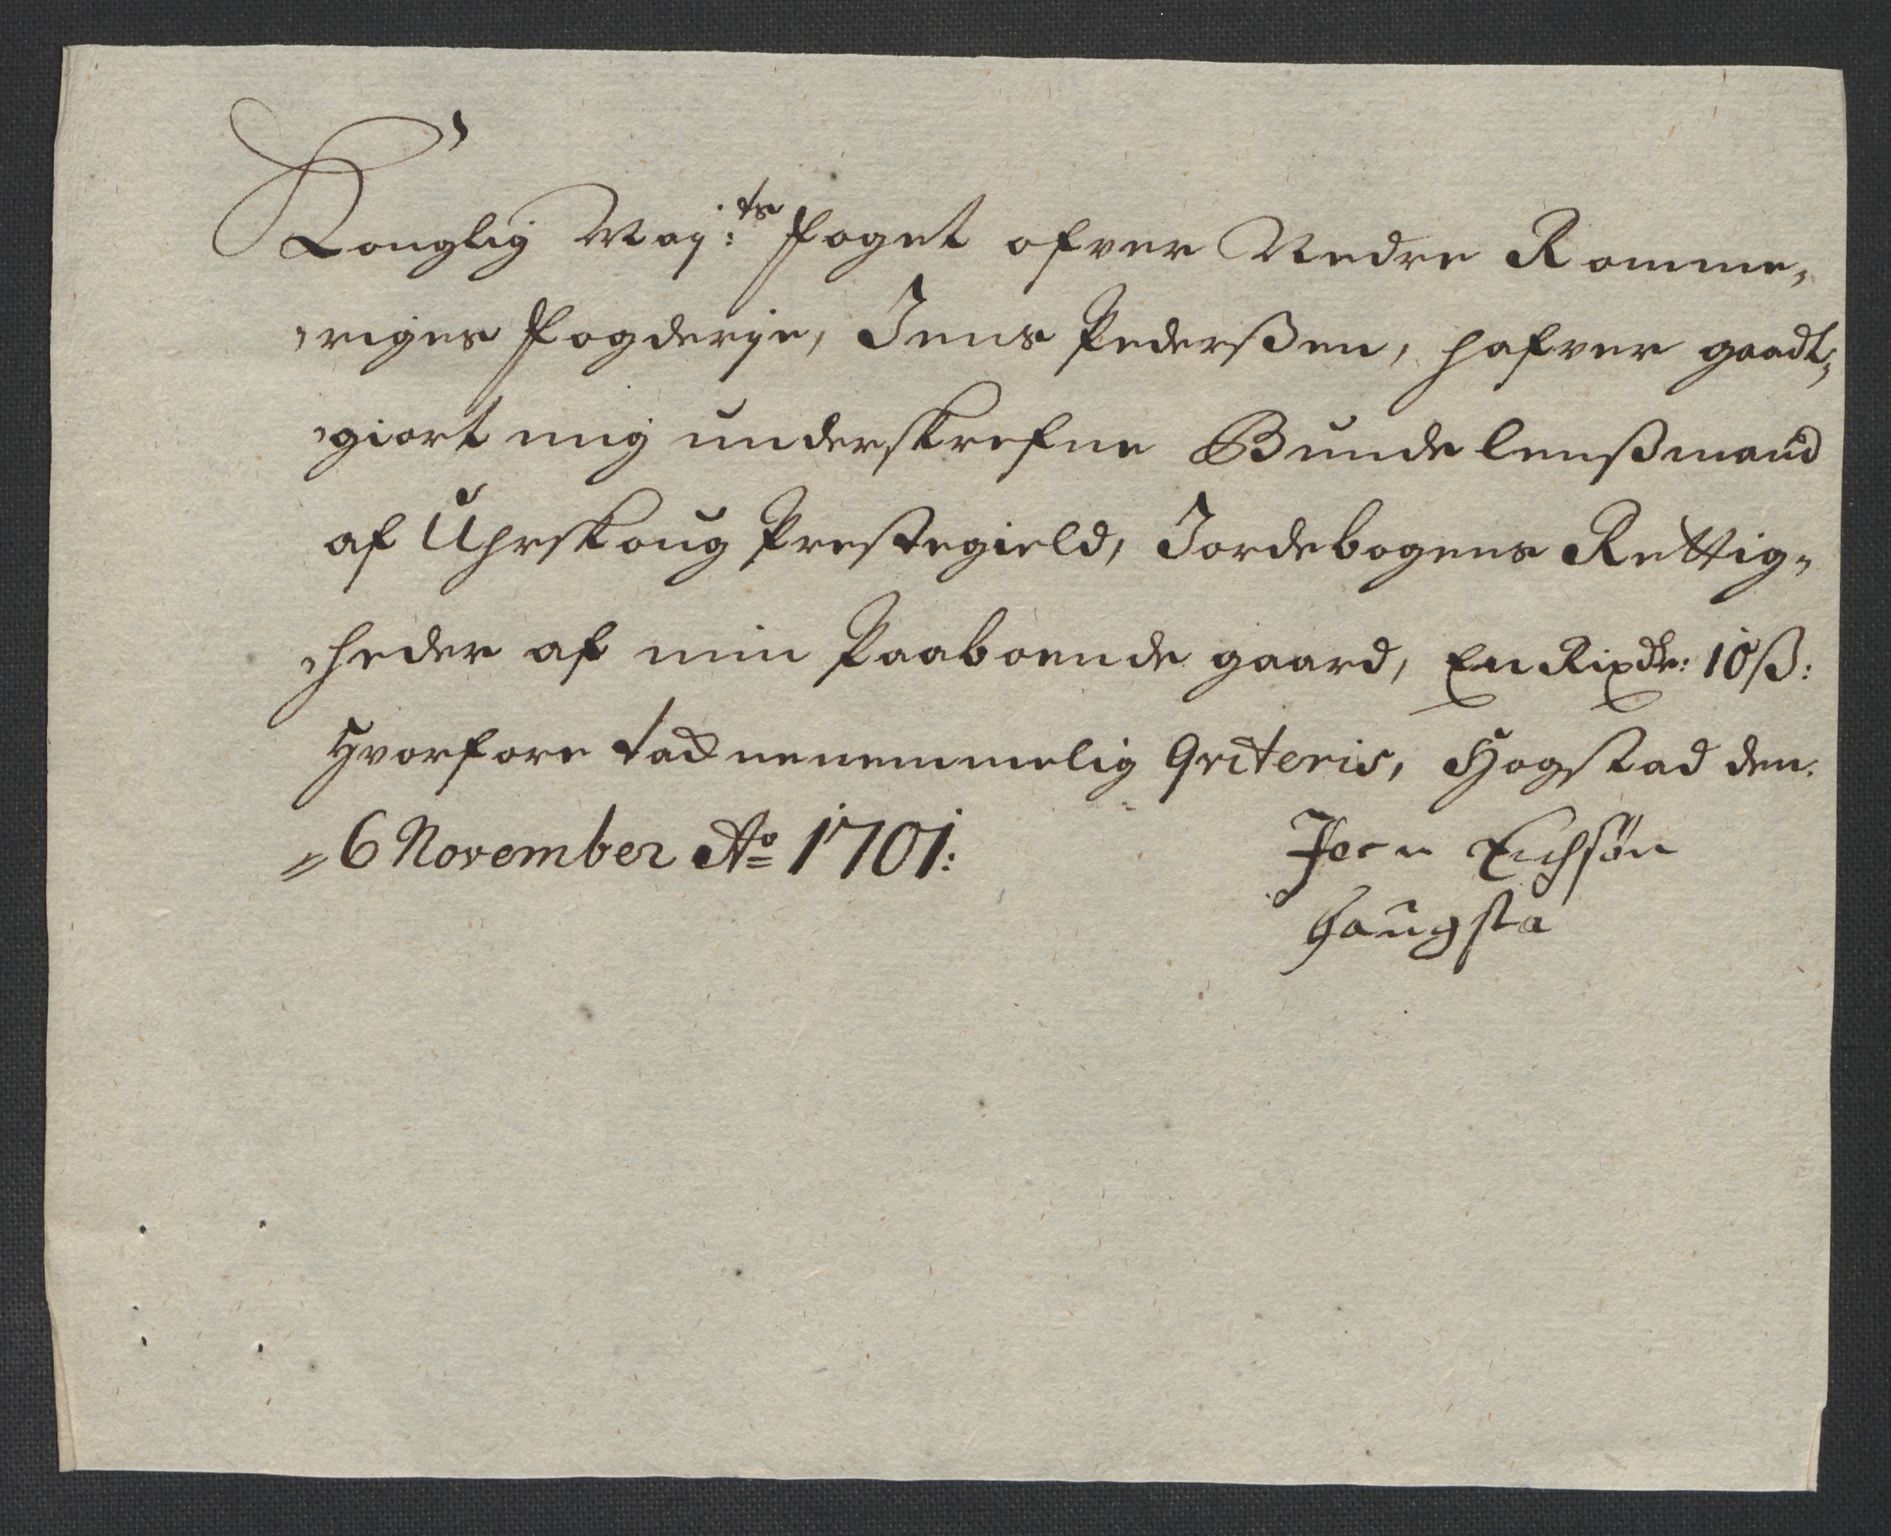 Konglig Maj:ts foget ofver Nedre Romme,
riges fogderje, Jens Pederßen, hafver gaadt,
giort mig underskrefne Bunde lenßmand
af Uhrskoug Prestegield, Jordebogens Rettig,
heder af min Paaboende gaard, En Rixdr: 10 ß:
Hvorfore tachnemmelig Qviteris, Hogstad den.
6 November Ao 1701:
Joen Erichsøn
Haugsta